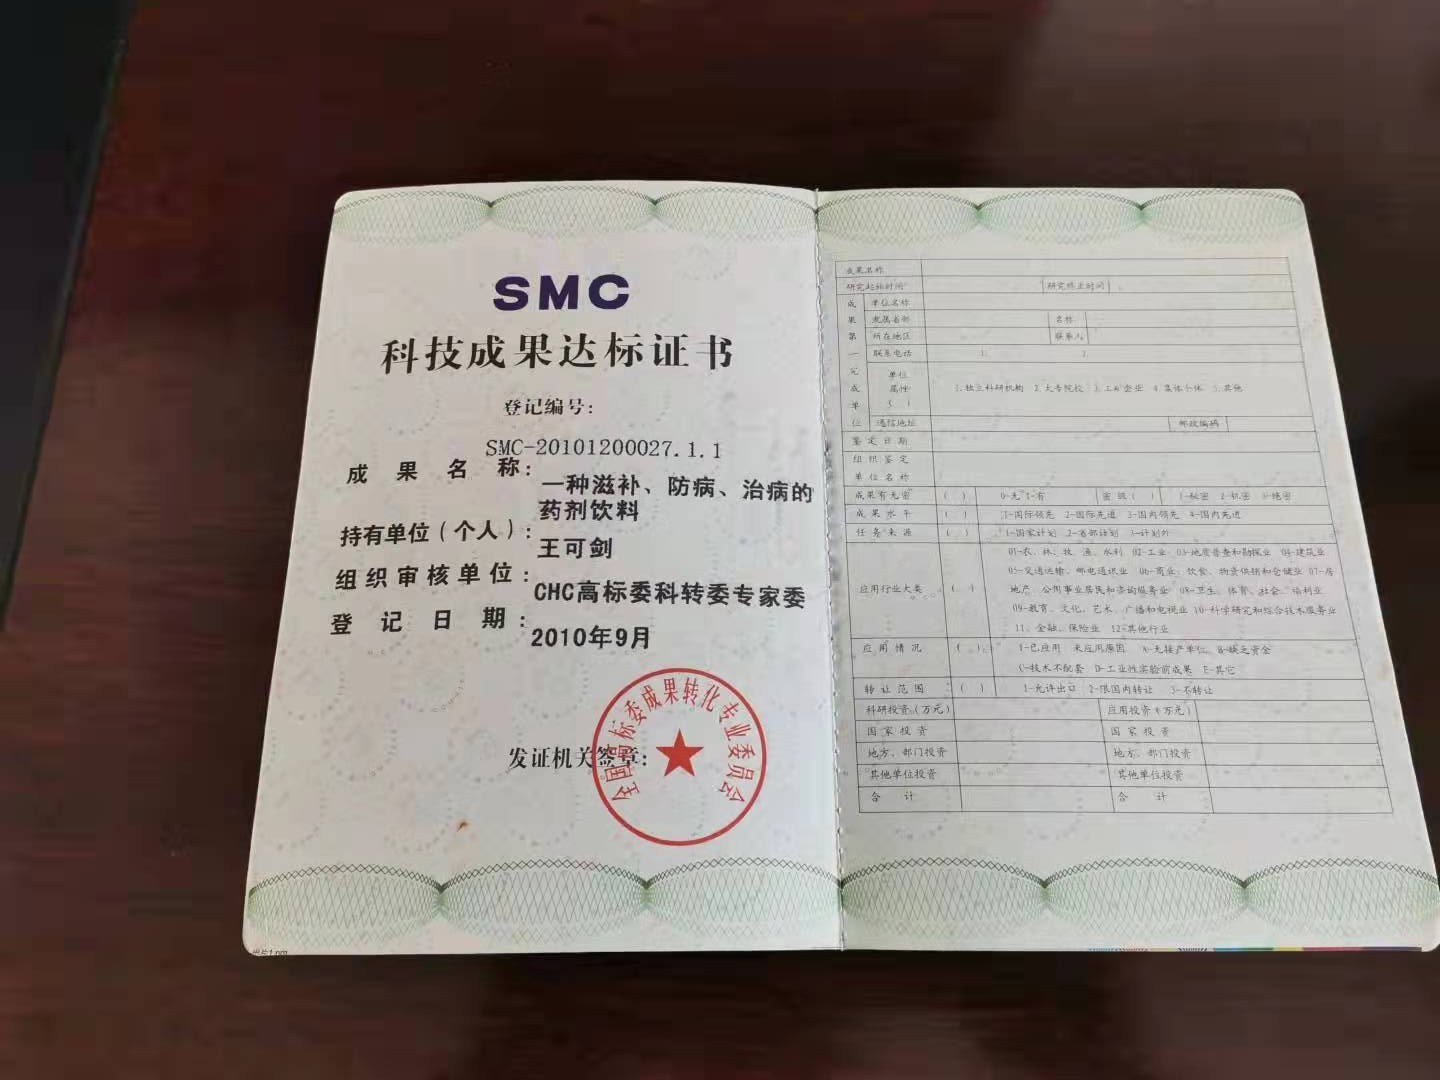 SMC
科技成果达标证书
登记编号：
SMC-20101200027.1.1
成果名称：
一种滋补、防病、治病的
药剂饮料
持有单位（个人）：
王可剑
组织审核单位：
CHC高标委科转委专家委
登记日期：
2010年9月
发证机关签章：
全国高标委成果转化专业委员会
成果名称
研究起始时间 研究终止时间
成果第一完成单位
单位名称
隶属省部 名称
所在地区 联系人
联系电话 1. 2.
单位
属性
（ ）
1.独立科研机构 2.大专院校 3.工矿企业 4.集体个体 5.其他
通信地址 邮政编码
鉴定日期
组织鉴定
单位名称
成果有无密 （ ） 0-无 1-有 密级（ ） 1-秘密 2-机密 3-绝密
成果水平 （ ） 1-国际领先 2-国际先进 3-国内领先 4-国内先进
任务来源 （ ） 1-国家计划 2-省部计划 3-计划外
应用行业大类 （ ）
01-农、林、牧、渔、水利 02-工业 03-地质普查和勘探业 04-建筑业
05-交通运输、邮电通讯业 06-商业、饮食、物资供销和仓储业 07-房
地产、公用事业居民和咨询服务业 08-卫生、体育、社会、福利业
09-教育、文化、艺术、广播和电视业 10-科学研究和综合技术服务业
11、金融、保险业 12-其他行业
应用情况 （ ） 1-已应用 未应用原因 A-无接产单位 B-缺乏资金
C-技术不配套 D-工业性实验前成果 E-其它
转让范围 （ ） 1-允许出口 2-限国内转让 3-不转让
科研投资（万元） 应用投资（万元）
国家投资 国家投资
地方、部门投资 地方、部门投资
其他单位投资 其他单位投资
合计 合计